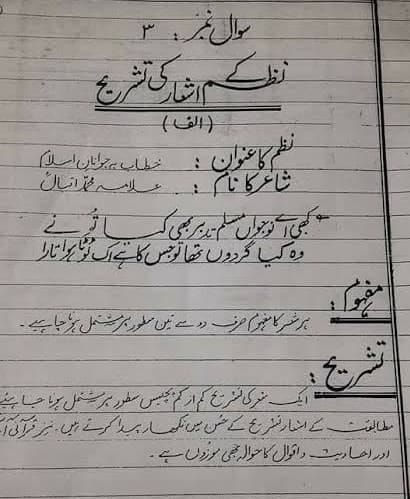 سوال نمبر: ۳
نظم کے اشعار کی تشریح
(الف)
نظم کا عنوان : خطاب بہ جوانان اسلام
شاعر کا نام : علامہ محمد اقبالؒ
کبھی اے نوجواں مسلم تدبر بھی کیا تُو نے
وہ کیا گردوں تھا تو جس کا ہے اک ٹوٹا ہوا تارا
مفہوم :
ہر شعر کا مفہوم صرف دو سے تین سطور پر مشتمل ہونا چاہیے۔
تشریح :
ایک شعر کی تشریح کم از کم پچیس سطور پر مشتمل ہونا چاہیے
مطابقت کے اشعار تشریح کے حسن میں نکھار پیدا کرتے ہیں۔ نیز قرآنی
اور احادیث و اقوال کا حوالہ بھی موزوں ہے۔